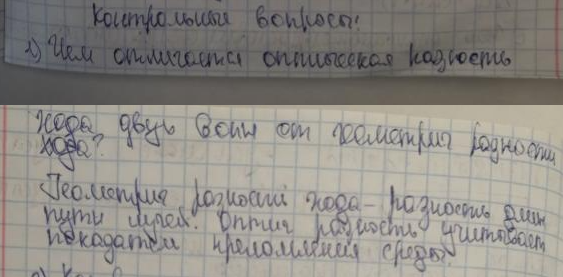 Контрольные вопросы:
1) Чем отличается оптическая разность
хода двух волн от геометрич разности
хода?
Геометрич разности хода - разность длин
пути лучей. Оптич разность учитывает
показатели преломления среды.